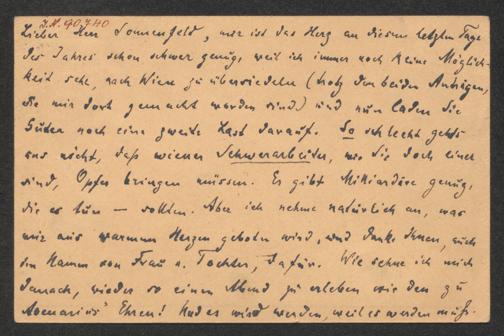 J.N. 90.740
Lieber Herr Sonnenfeld, mir ist das Herz an diesem letzten Tage
des Jahres schon schwer genug, weil ich immer noch keine Möglich-
keit sehe, nach Wien zu übersiedeln (trotz den beiden Anträgen,
die mir dort gemacht worden sind) und nun laden Sie
Guter noch eine zweite Last darauf. So schlecht geht's
uns nicht, daß wiener Schwerarbeiter, wie Sie doch einer
sind, Opfer bringen müssen. Es gibt Milliardäre genug,
die es tun — sollten. Aber ich nehme natürlich an, was
mir aus warmem Herzen geboten wird, und danke Ihnen, auch
im Namen von Frau u. Tochter, dafür. Wie sehne ich mich
danach, wieder so einen Abend zu erleben wie den zu
Avenarius' Ehren! Und es wird werden, weil es werden muß.